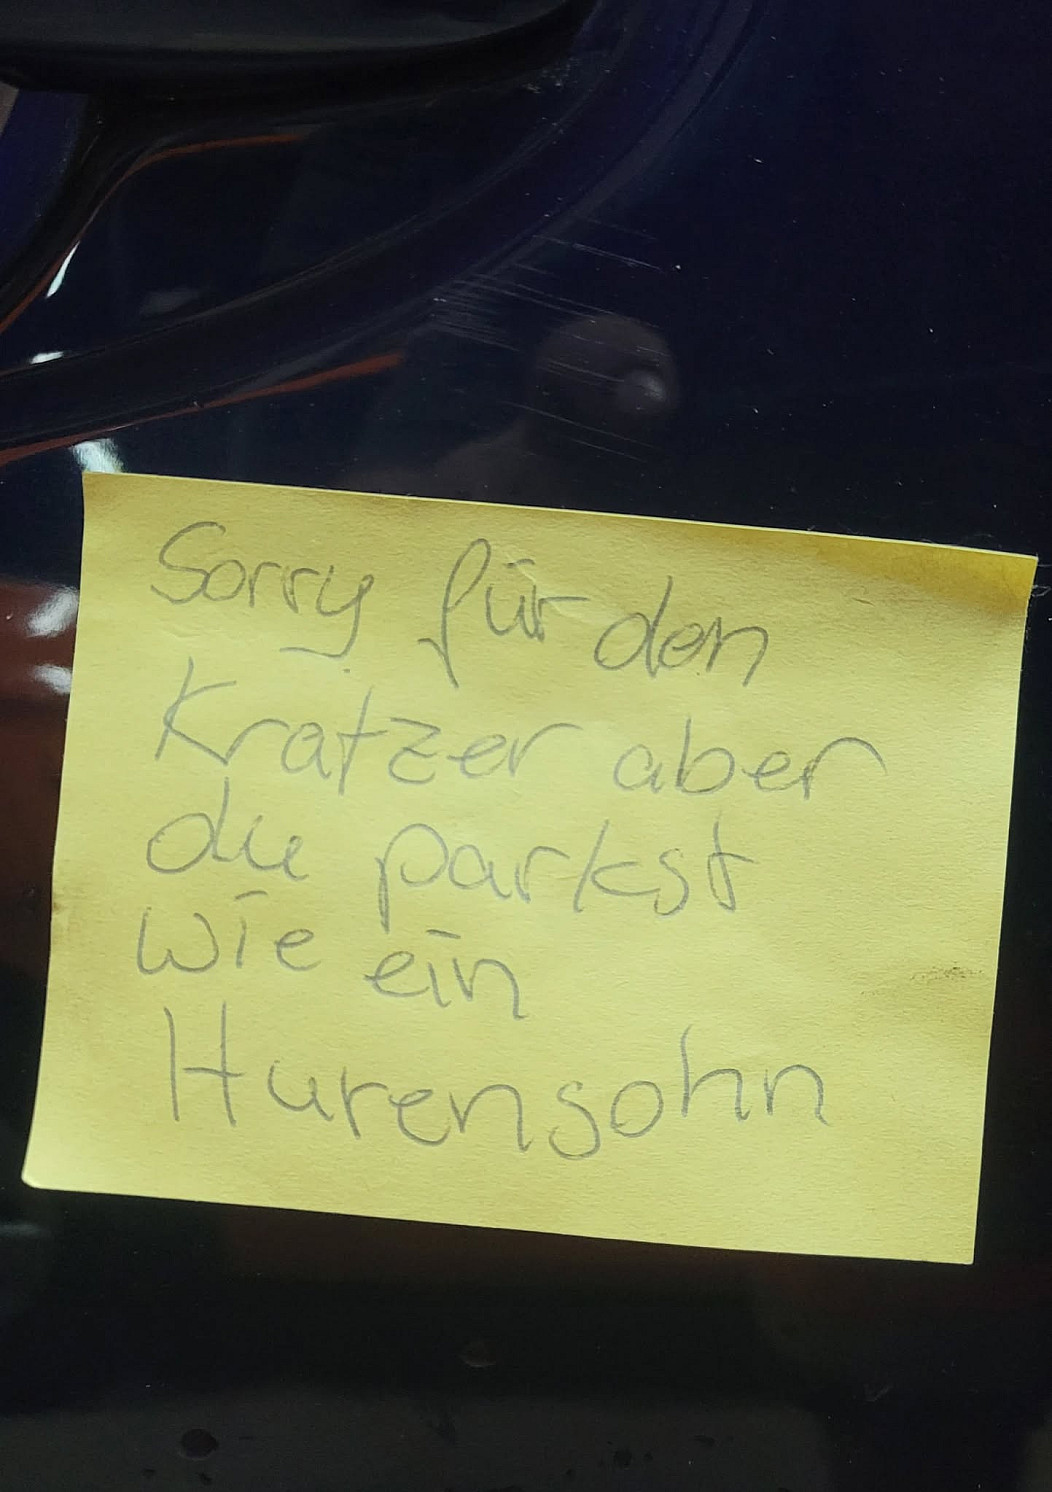 Sorry für den
Kratzer aber
du parkst
wie ein
Hurensohn